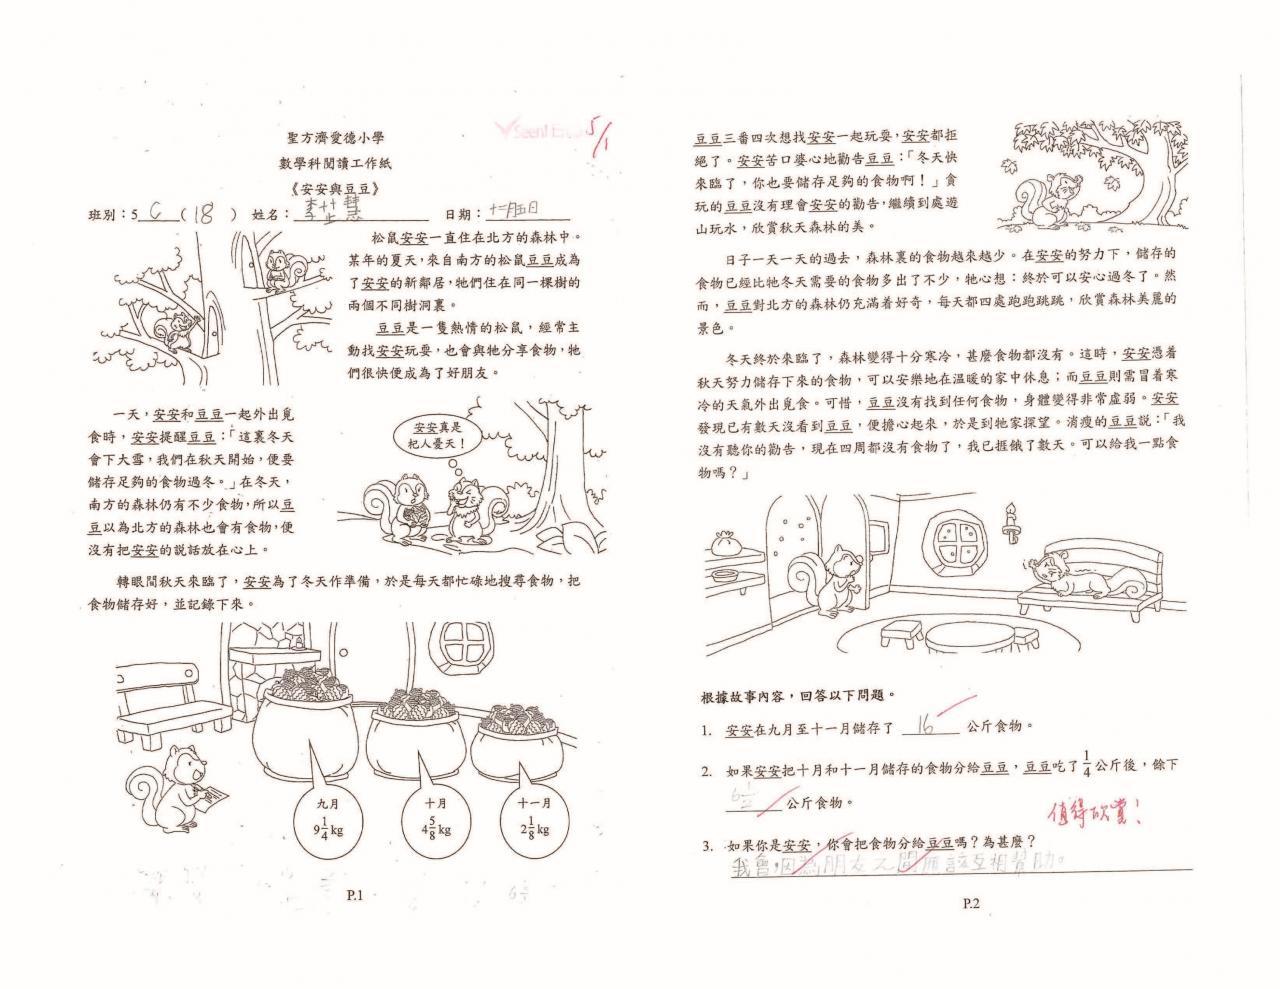 聖方濟愛德小學
數學科閱讀工作紙
《安安與豆豆》
5/1
班別：5 C ( 18 ) 姓名： 日期：十二月五日
松鼠安安一直住在北方的森林中。
某年的夏天，來自南方的松鼠豆豆成為
了安安的新鄰居，牠們住在同一棵樹的
兩個不同樹洞裏。
豆豆是一隻熱情的松鼠，經常主
動找安安玩耍，也會與牠分享食物，牠
們很快便成為了好朋友。
一天，安安和豆豆一起外出覓
食時，安安提醒豆豆：「這裏冬天
會下大雪，我們在秋天開始，便要
儲存足夠的食物過冬。」在冬天，
南方的森林仍有不少食物，所以豆
豆以為北方的森林也會有食物，便
沒有把安安的說話放在心上。
安安真是
杞人憂天！
轉眼間秋天來臨了，安安為了冬天作準備，於是每天都忙碌地搜尋食物，把
食物儲存好，並記錄下來。
九月
9 1/4 kg
十月
4 5/8 kg
十一月
2 1/8 kg
6 1/2
P.1
豆豆三番四次想找安安一起玩耍，安安都拒
絕了。安安苦口婆心地勸告豆豆：「冬天快
來臨了，你也要儲存足夠的食物啊！」貪
玩的豆豆沒有理會安安的勸告，繼續到處遊
山玩水，欣賞秋天森林的美。
日子一天一天的過去，森林裏的食物越來越少。在安安的努力下，儲存的
食物已經比牠冬天需要的食物多出了不少，牠心想：終於可以安心過冬了。然
而，豆豆對北方的森林仍充滿着好奇，每天都四處跑跑跳跳，欣賞森林美麗的
景色。
冬天終於來臨了，森林變得十分寒冷，甚麼食物都沒有。這時，安安憑着
秋天努力儲存下來的食物，可以安樂地在溫暖的家中休息；而豆豆則需冒着寒
冷的天氣外出覓食。可惜，豆豆沒有找到任何食物，身體變得非常虛弱。安安
發現已有數天沒看到豆豆，便擔心起來，於是到牠家探望。消瘦的豆豆說：「我
沒有聽你的勸告，現在四周都沒有食物了，我已捱餓了數天。可以給我一點食
物嗎？」
根據故事內容，回答以下問題。
1. 安安在九月至十一月儲存了 16 公斤食物。
2. 如果安安把十月和十一月儲存的食物分給豆豆，豆豆吃了 1/4 公斤後，餘下
6 1/2 公斤食物。
值得欣賞！
3. 如果你是安安，你會把食物分給豆豆嗎？為甚麼？
我會，因為朋友之間應該互相幫助。
P.2